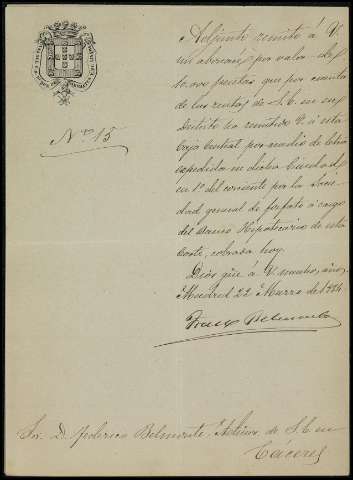 Adjunto remito á V.
un abonaré por valor de
pesetas que por cuenta
de las rentas de S. E. en su
Distrito ha remitido V. á esta
Caja Central por medio de letra
expedida en dicha Ciudad
en 1º del corriente por la Socie
dad general de fosfatos á cargo
del Banco Hipotecario de esta
Corte, cobrada hoy.
Dios gue á V. muchos años
Madrid 22 Marzo de
Belmonte
Nº 15
Sor. D. Federico Belmonte. Admor. de S. E. en
Cáceres